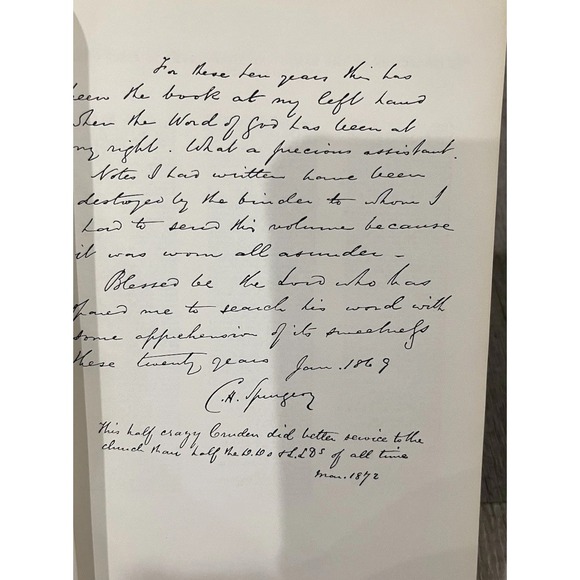 For these ten years this has
been the book at my left hand
when the Word of God has been at
my right. What a precious assistant.
Notes I had written have been
destroyed by the binder to whom I
had to send this volume because
it was worn all asunder –
Blessed be the Lord who has
spared me to search his word with
some apprehension of its sweetness
these twenty years Jan. 1869
C. H. Spurgeon
This half crazy Cruden did better service to the
church than half the D.Ds & L.L.Ds of all time
Mar. 1872